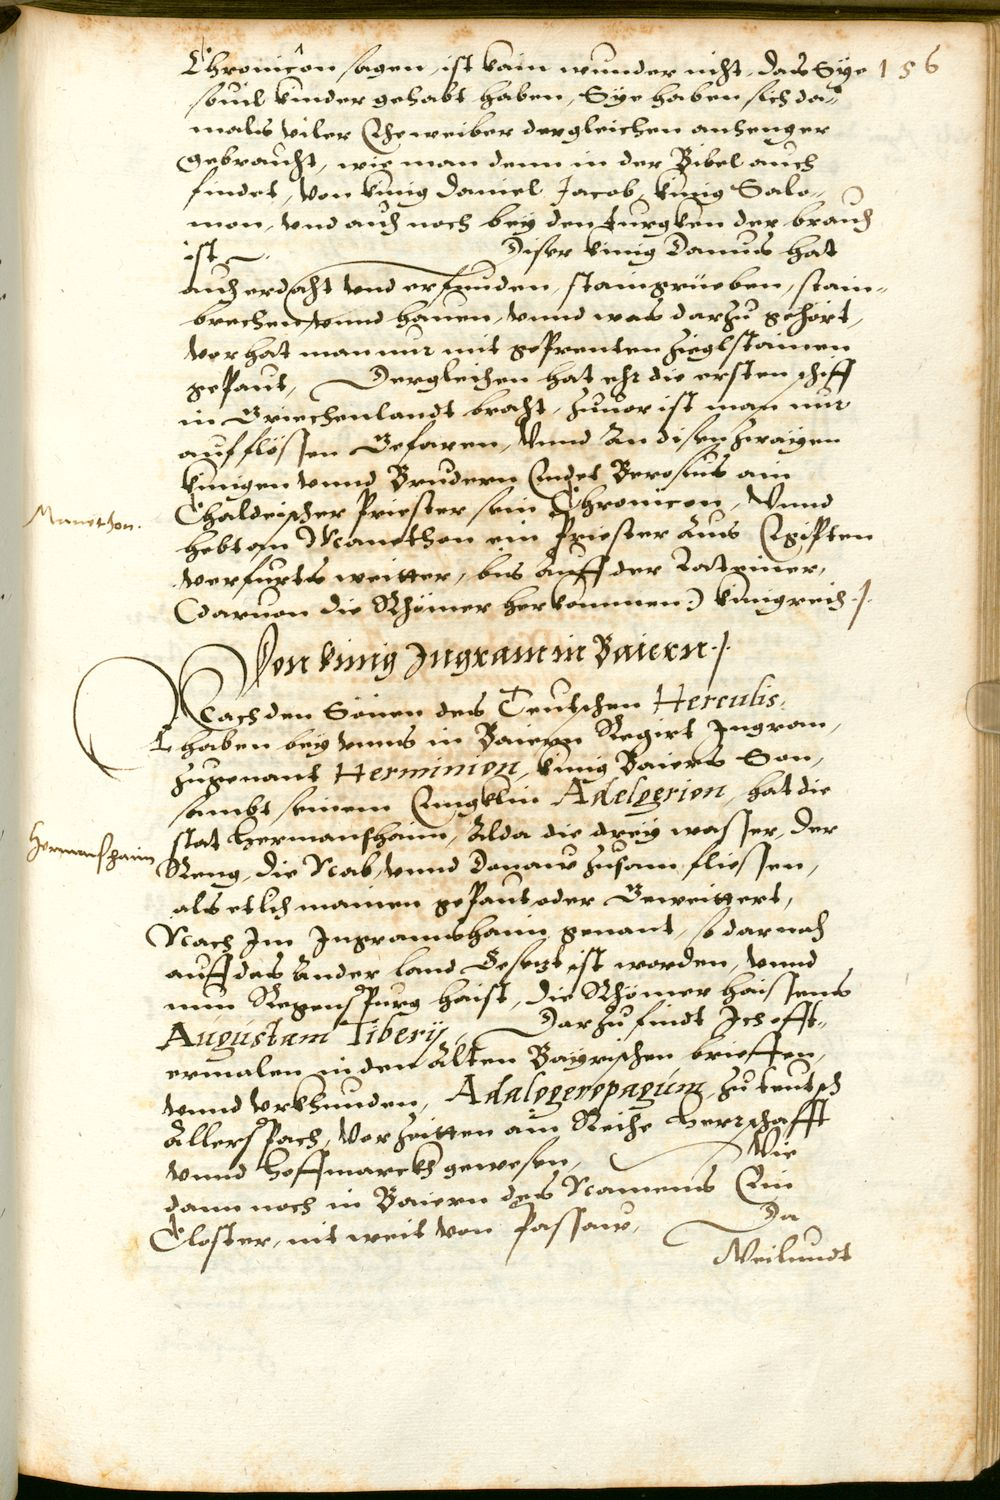 Chronicôn sagen, ist kain wunder nicht, das Sÿe 156
souil kinder gehabt haben, Sÿe haben sich da-
mals viler Eheweiber dergleichen anhenger
gebraucht, wie man denn in der Bibel auch
findet, von künig Daniel Jacob, künig Salo-
mon, vnd auch noch beÿ den turgken der brauch
ist. Diser künig Danus hat
auch erdacht vnd erfunden, staingrüeben, stain-
brechen, vnnd hauen, vnnd was darzu gehört,
vor hat man nur mit geprenten Zieglstainen
gepaut, Dergleichen hat ehr die ersten schiff
in Griechenlandt bracht, zuuor ist man nur
auf flössen Gefaren, Vnnd an disen zwaÿen
künigen vnnd Brudern Endet Berosus ain
Chaldeischer Priester sein Chronicon, Vnnd
Manethon.
hebt an Manethon ein Priester aus Egipten
verfurts weitter, bis auff der Lateiner,
(daruon die Rhömer herkommen) künigreich ./.
Von künig Ingram in Baiern ./.
Nach den Sönen des Teutschen Herculis,
haben beÿ vnns in Baiern Regirt Ingram,
zugenant Herminion, künig Baiers Son,
sambt seinem Engklin Adelgerion, hat die
Hermanshaim
stat Hermanshaim, alda die dreÿ wasser, der
Reng, die Nab, vnnd Donaw zusam fliessen,
als etlich mainen gepaut oder Geweittert,
Nach Im Ingramshaim genant, so darnach
auff das ander land Gesetzt ist worden, vnnd
nun Regenspurg haist, die Rhömer haissens
Augustam Tiberij, Darzu findt Ich offt-
ermalen in den alten Baÿrischen brieffen,
vnnd vrkhunden, Adalogeropagum, zu teutsch
Allerspach, Vor zeitten ain Reiche herrschafft
vnnd hoffmarckh gewesen, Wie
dann noch in Baiern des Namens Ein
Closter, nit weit von Passaw, Da
Weilundt